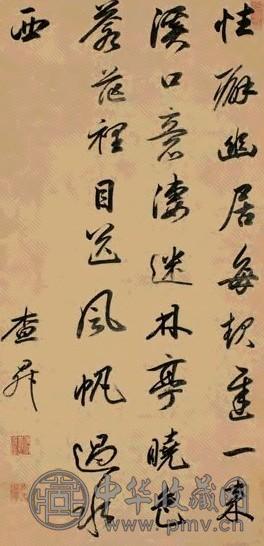 性癖幽居每一來
溪口意淒迷林亭曉色
蒼茫裡目送風帆過水
西
查昇
中华收藏网
www.pmv.cn